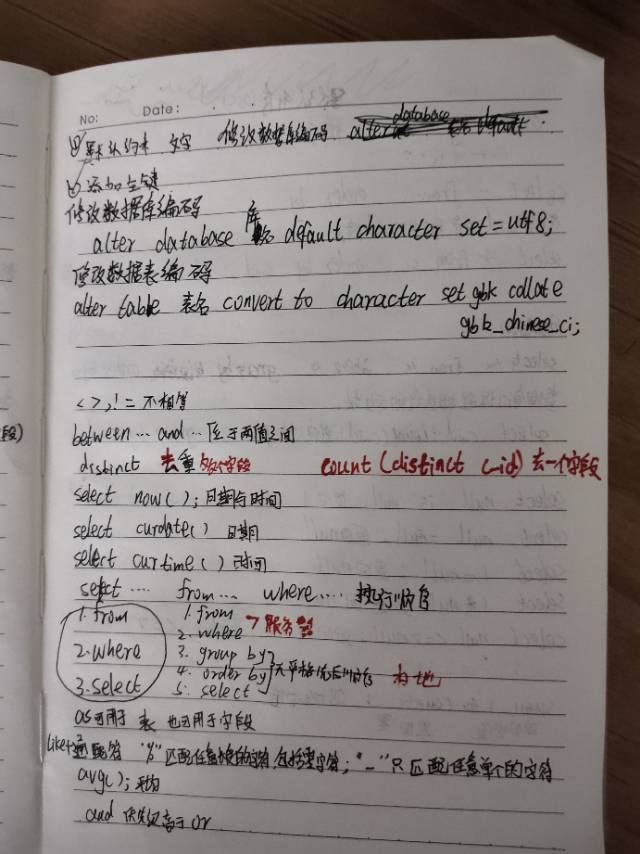 No: Date:
默认约束 文字 修改数据库编码 alter database 库名 default
添加主键
修改数据库编码
alter database 库名 default character set=utf8;
修改数据表编码
alter table 表名 convert to character set gbk collate
gbk_chinese_ci;
<>,!= 不相等
between…and…位于两值之间
段)
distinct 去重多个字段 count(distinct c_id)去一个字段
select now();日期与时间
select curdate() 日期
select curtime() 时间
select…… from…… where…… 执行顺序
1.from
2.where
3.select
1.from
2.where 服务器
3. group by
4. order by 本地
5. select
as可用于 表 也可用于字段
like+通配符 "%"匹配任意长度的字符,包括零字符;"_"只匹配任意单个的字符
avg();平均
and 优先级高于or